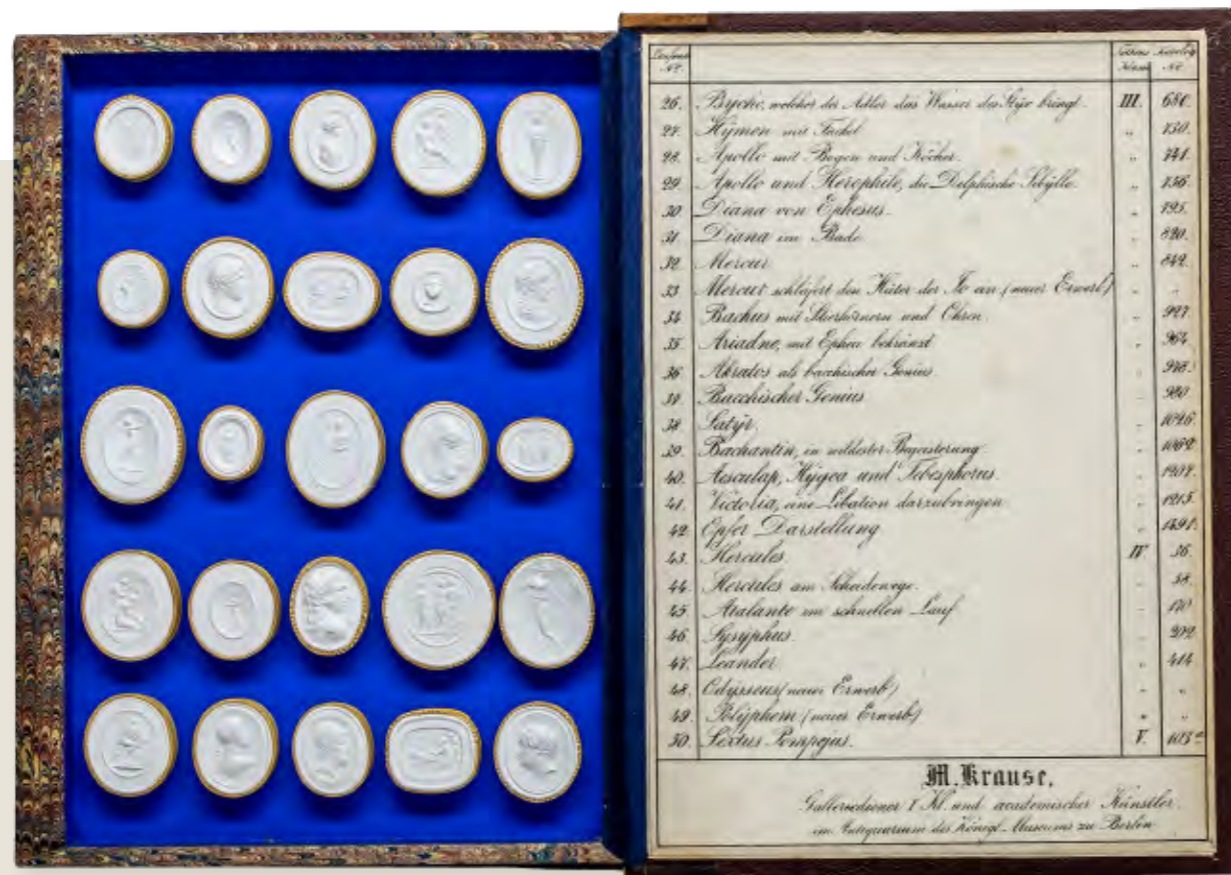 Laufende Nº. Tölkens Klasse Katalog Nº.
26. Psyche, welcher der Adler das Wasser des Styx bringt. III. 680.
27. Hymen mit Fackel „ 730.
28. Apollo mit Bogen und Köcher. „ 741.
29. Apollo und Herophile, die Delphische Sibylle. „ 756.
30. Diana von Ephesus. „ 795.
31. Diana im Bade. „ 820.
32. Mercur. „ 842.
33 Mercur schläfert den Hüter der Io an (neuer Erwerb) „ „
34 Bachus mit Stierhörnern und Ohren. „ 927.
35 Ariadne, mit Epheu bekränzt „ 964.
36 Akratos als bacchischer Genius. „
37. Bacchischer Genius „ 980
38. Satÿr. „ 1026.
39. Bachantin, in wildester Begeisterung „ 1062
40. Aesculap, Hÿgea und Telesphorus. „ 1207.
41. Victoria, eine Libation darzubringen „ 1215.
42. Opfer Darstellung „ 1491.
43. Hercules. IV. 36.
44. Hercules am Scheidewege. „ 58.
45. Atalante im schnellen Lauf „ 170
46. Sysÿphus. „ 202
47. Leander. „ 414
48. Odÿsseus (neuer Erwerb) „ „
49. Polÿphem (neuer Erwerb) „ „
50. Sextus Pompejus. V. 103
M. Krause,
Galleriediener I Kl. und academischer Künstler
im Antiquarium des Königl. Museums zu Berlin